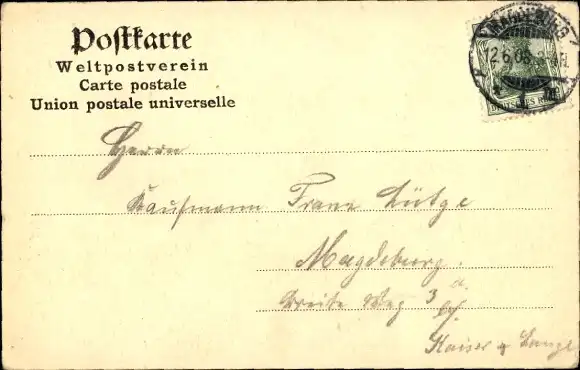 Postkarte
Weltpostverein
Carte postale
Union postale universelle
MAGDEBURG
2.6.08
DEUTSCHES REICH
Herrn
Kaufmann Franz Lütge
Magdeburg.
Breite Weg 3 a.
Kaiser & Lange